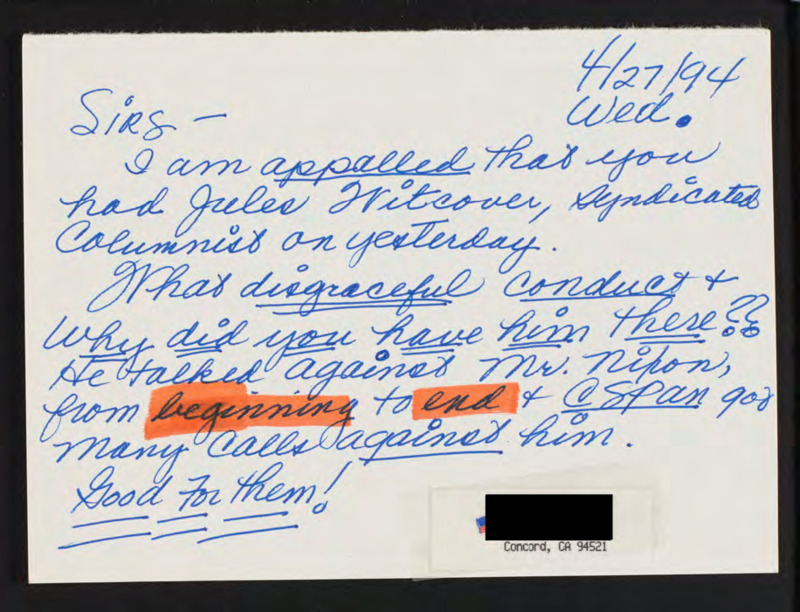 4/27/94
Wed.
Sirs –
I am appalled that you
had Jules Witcover, Syndicated
Columnist on yesterday.
What disgraceful conduct &
Why did you have him there??
He talked against Mr. Nixon,
from beginning to end & CSPAN got
many calls against him.
Good For them!
Concord, CA 94521